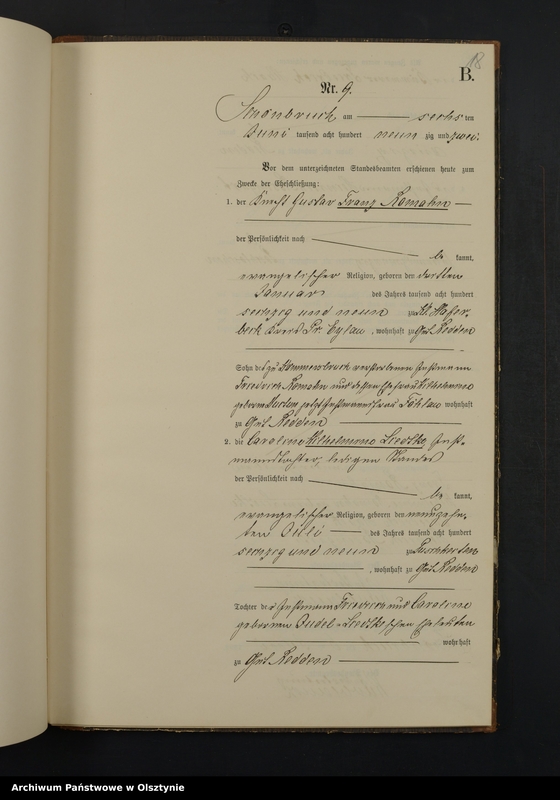 18
B.
Nr. 9.
am sechs ten
Juni tausend acht hundert neun zig und zwei.
Vor dem unterzeichneten Standesbeamten erschienen heute zum
Zwecke der Eheschließung:
1. der Knecht Gustav Franz Romahn
der Persönlichkeit nach
be kannt,
evangelischer Religion, geboren den dritten
Januar des Jahres tausend acht hundert
sechzig und neun zu Kl. Hafer-
beck Kreis Pr. Eylau, wohnhaft zu Gut Redden
Sohn des zu verstorbenen Instmann
Friedrich Romahn und dessen Ehefrau Wilhelmine
geborene jetzt Instmannsfrau wohnhaft
zu Gut Redden
2. die Caroline Wilhelmine Liedtke Inst-
mannstochter, ledigen Standes
der Persönlichkeit nach
be kannt,
evangelischer Religion, geboren den neunzehn-
ten Juli des Jahres tausend acht hundert
sechzig und neun zu
, wohnhaft zu Gut Redden
Tochter der Instmann Friedrich und Caroline
geborenen Liedtke'schen Eheleuten
wohnhaft
zu Gut Redden
Archiwum Państwowe w Olsztynie